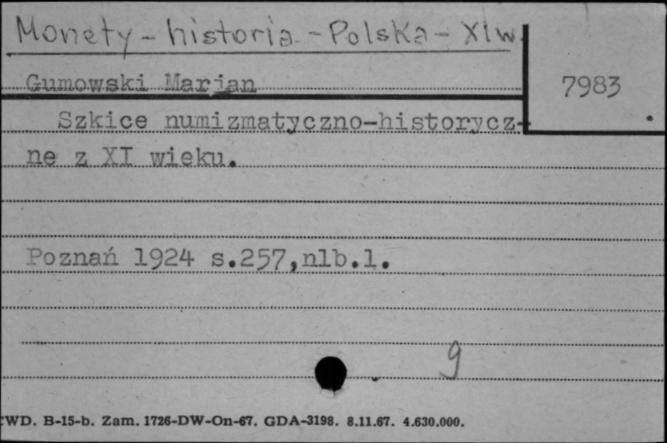 Monety - historia - Polska - XI w.
Gumowski Marian
7983
Szkice numizmatyczno-historycz-
ne z XI wieku.
Poznań 1924 s.257,nlb.1.
9
CWD. B-15-b. Zam. 1726-DW-On-67. GDA-3198. 8.11.67. 4.630.000.